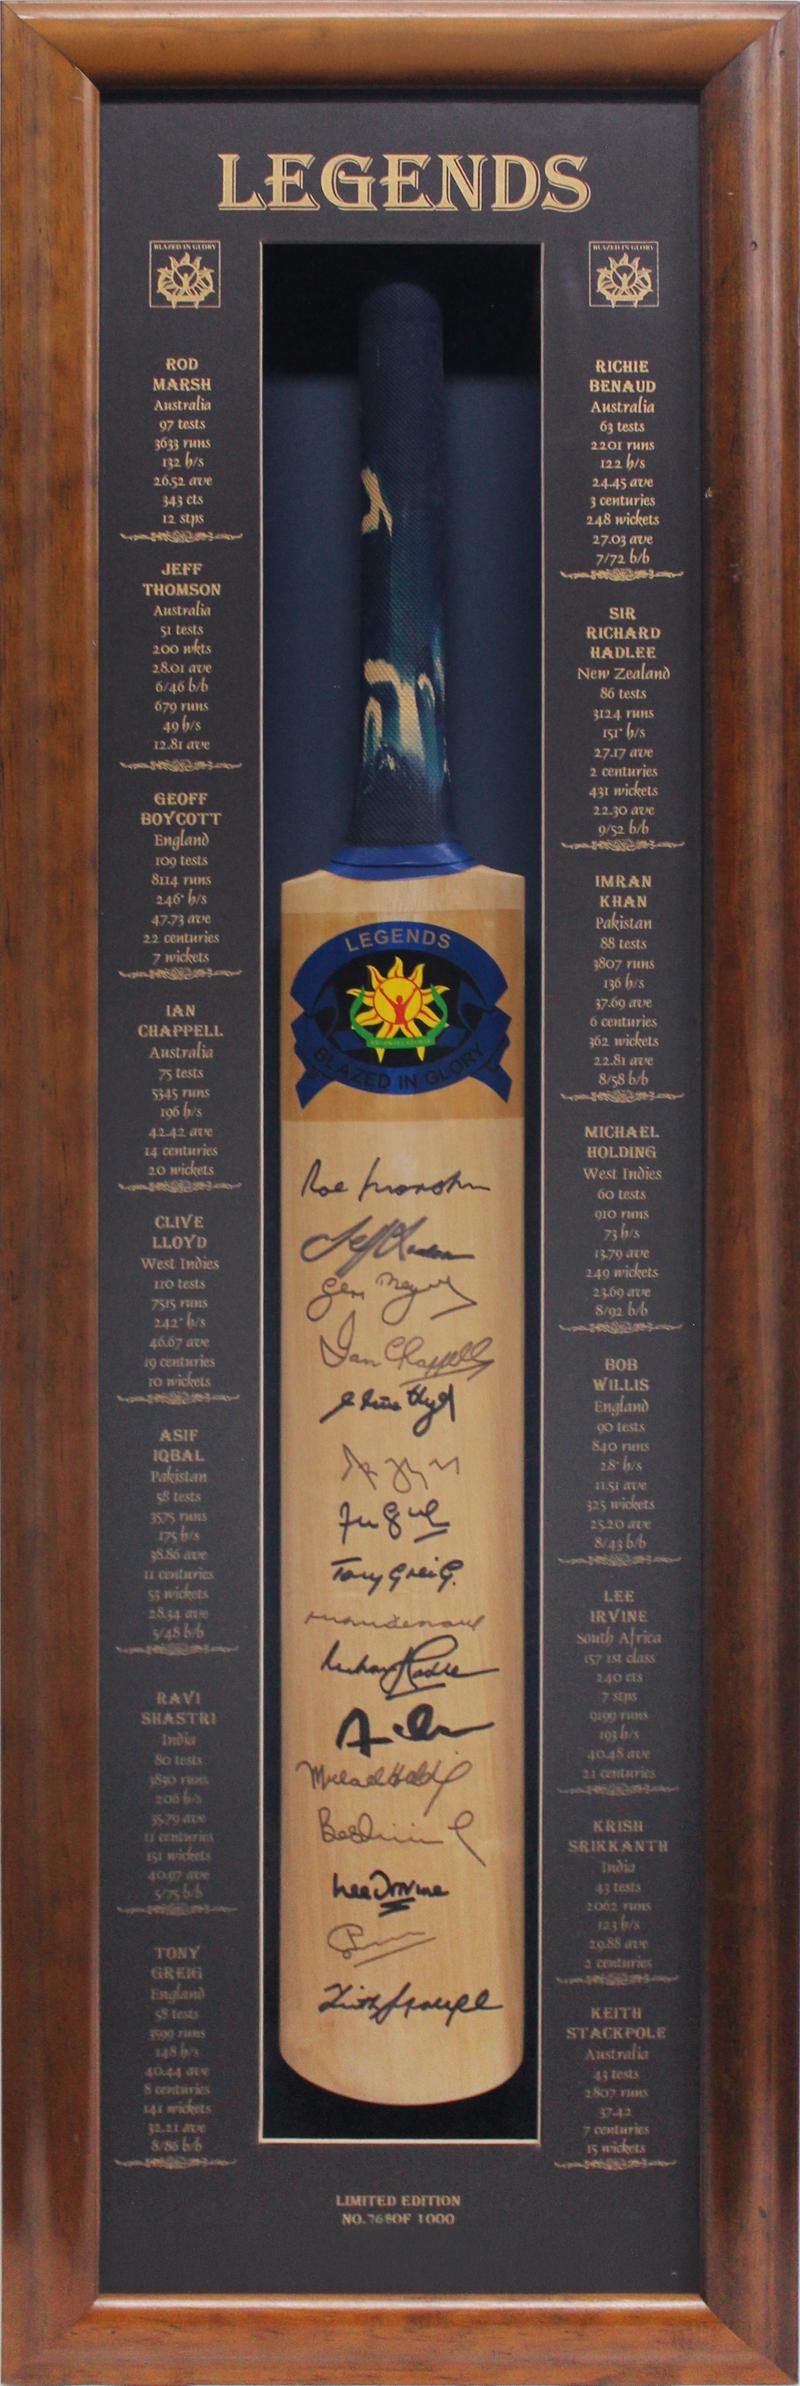 LEGENDS
BLAZED IN GLORY
ROD
MARSH
Australia
97 tests
3633 runs
132 h/s
26.52 ave
343 cts
12 stps
JEFF
THOMSON
Australia
51 tests
200 wkts
28.01 ave
6/46 b/b
679 runs
49 h/s
12.81 ave
GEOFF
BOYCOTT
England
109 tests
8114 runs
246* h/s
47.73 ave
22 centuries
7 wickets
IAN
CHAPPELL
Australia
75 tests
5345 runs
196 h/s
42.42 ave
14 centuries
20 wickets
CLIVE
LLOYD
West Indies
110 tests
7515 runs
242* h/s
46.67 ave
19 centuries
10 wickets
ASIF
IQBAL
Pakistan
58 tests
3575 runs
175 h/s
38.86 ave
11 centuries
53 wickets
28.34 ave
5/48 b/b
RAVI
SHASTRI
India
80 tests
3830 runs
206 h/s
35.79 ave
11 centuries
151 wickets
40.97 ave
5/75 b/b
TONY
GREIG
England
58 tests
3599 runs
148 h/s
40.44 ave
8 centuries
141 wickets
32.21 ave
8/86 b/b
LEGENDS
BLAZED IN GLORY
Ian Chappell
Clive Lloyd
Tony Greig.
Richard Hadlee
Michael Holding
Lee Irvine
Keith Stackpole
BLAZED IN GLORY
RICHIE
BENAUD
Australia
63 tests
2201 runs
122 h/s
24.45 ave
3 centuries
248 wickets
27.03 ave
7/72 b/b
SIR
RICHARD
HADLEE
New Zealand
86 tests
3124 runs
151* h/s
27.17 ave
2 centuries
431 wickets
22.30 ave
9/52 b/b
IMRAN
KHAN
Pakistan
88 tests
3807 runs
136 h/s
37.69 ave
6 centuries
362 wickets
22.81 ave
8/58 b/b
MICHAEL
HOLDING
West Indies
60 tests
910 runs
73 h/s
13.79 ave
249 wickets
23.69 ave
8/92 b/b
BOB
WILLIS
England
90 tests
840 runs
28* h/s
11.51 ave
325 wickets
25.20 ave
8/43 b/b
LEE
IRVINE
South Africa
157 1st class
240 cts
7 stps
9199 runs
193 h/s
40.48 ave
21 centuries
KRISH
SRIKKANTH
India
43 tests
2062 runs
123 h/s
29.88 ave
2 centuries
KEITH
STACKPOLE
Australia
43 tests
2807 runs
37.42
7 centuries
15 wickets
LIMITED EDITION
NO. OF 1000